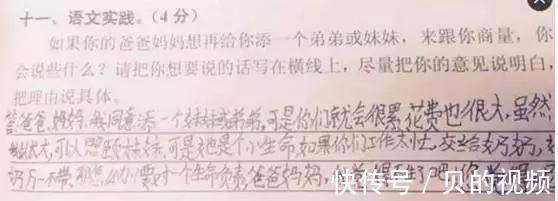 十一、语文实践。(4分)
如果你的爸爸妈妈想再给你添一个弟弟或妹妹,来跟你商量,你
会说些什么?请把你想要说的话写在横线上,尽量把你的意见说明白,
把理由说具体。
答:爸爸,妈妈,我同意添一个妹妹或弟弟,可是你们就会很累,花费也很大,虽然
可以照顾妹妹,可是她是个小生命,如果你们工作太忙,交给奶奶,奶
奶万一不带,要对一个生命负责,爸爸妈妈,
快传号/贝的视频